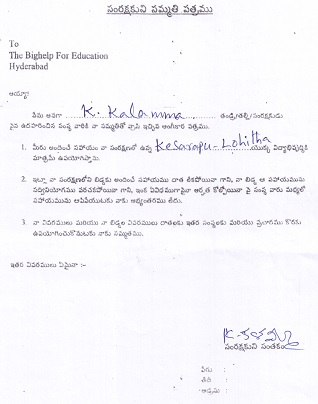 సంరక్షకుని సమ్మతి పత్రము
To
The Bighelp For Education
Hyderabad
అయ్యా!
నేను అనగా K. Kalamma తండ్రి/తల్లి/సంరక్షకుడు
పైన ఉదహరించిన సంస్థ వారికి నా సమ్మతితో వ్రాసి ఇచ్చిన అంగీకార పత్రము.
1. మీరు అందించే సహాయం నా సంరక్షణలో ఉన్న Kesarapu-Lohitha యొక్క విద్యాభివృద్ధికి
మాత్రమే ఉపయోగిస్తాను.
2. ఇట్లా నా సంరక్షణలోని బిడ్డకు అందించే సహాయము దాత లేకపోయినా గాని, నా బిడ్డ ఆ సహాయమును
సద్వినియోగము పరచకపోయినా గాని, ఇంక ఏవిధముగానైనా అర్హత కోల్పోయినా పై సంస్థ వారు మధ్యలో
సహాయమును ఆపివేయుటకు నాకు అభ్యంతరము లేదు.
3. నా వివరములు మరియు నా బిడ్డల వివరములు దాతలకు ఇతర సంస్థలకు మరియు ప్రచారము కొరకు
ఉపయోగించుకొనుటకు నాకు సమ్మతము.
ఇతర వివరములు ఏమైనా :-
K-కళమ్మ
సంరక్షకుని సంతకం
పేరు :
తేది :
అడ్రసు :